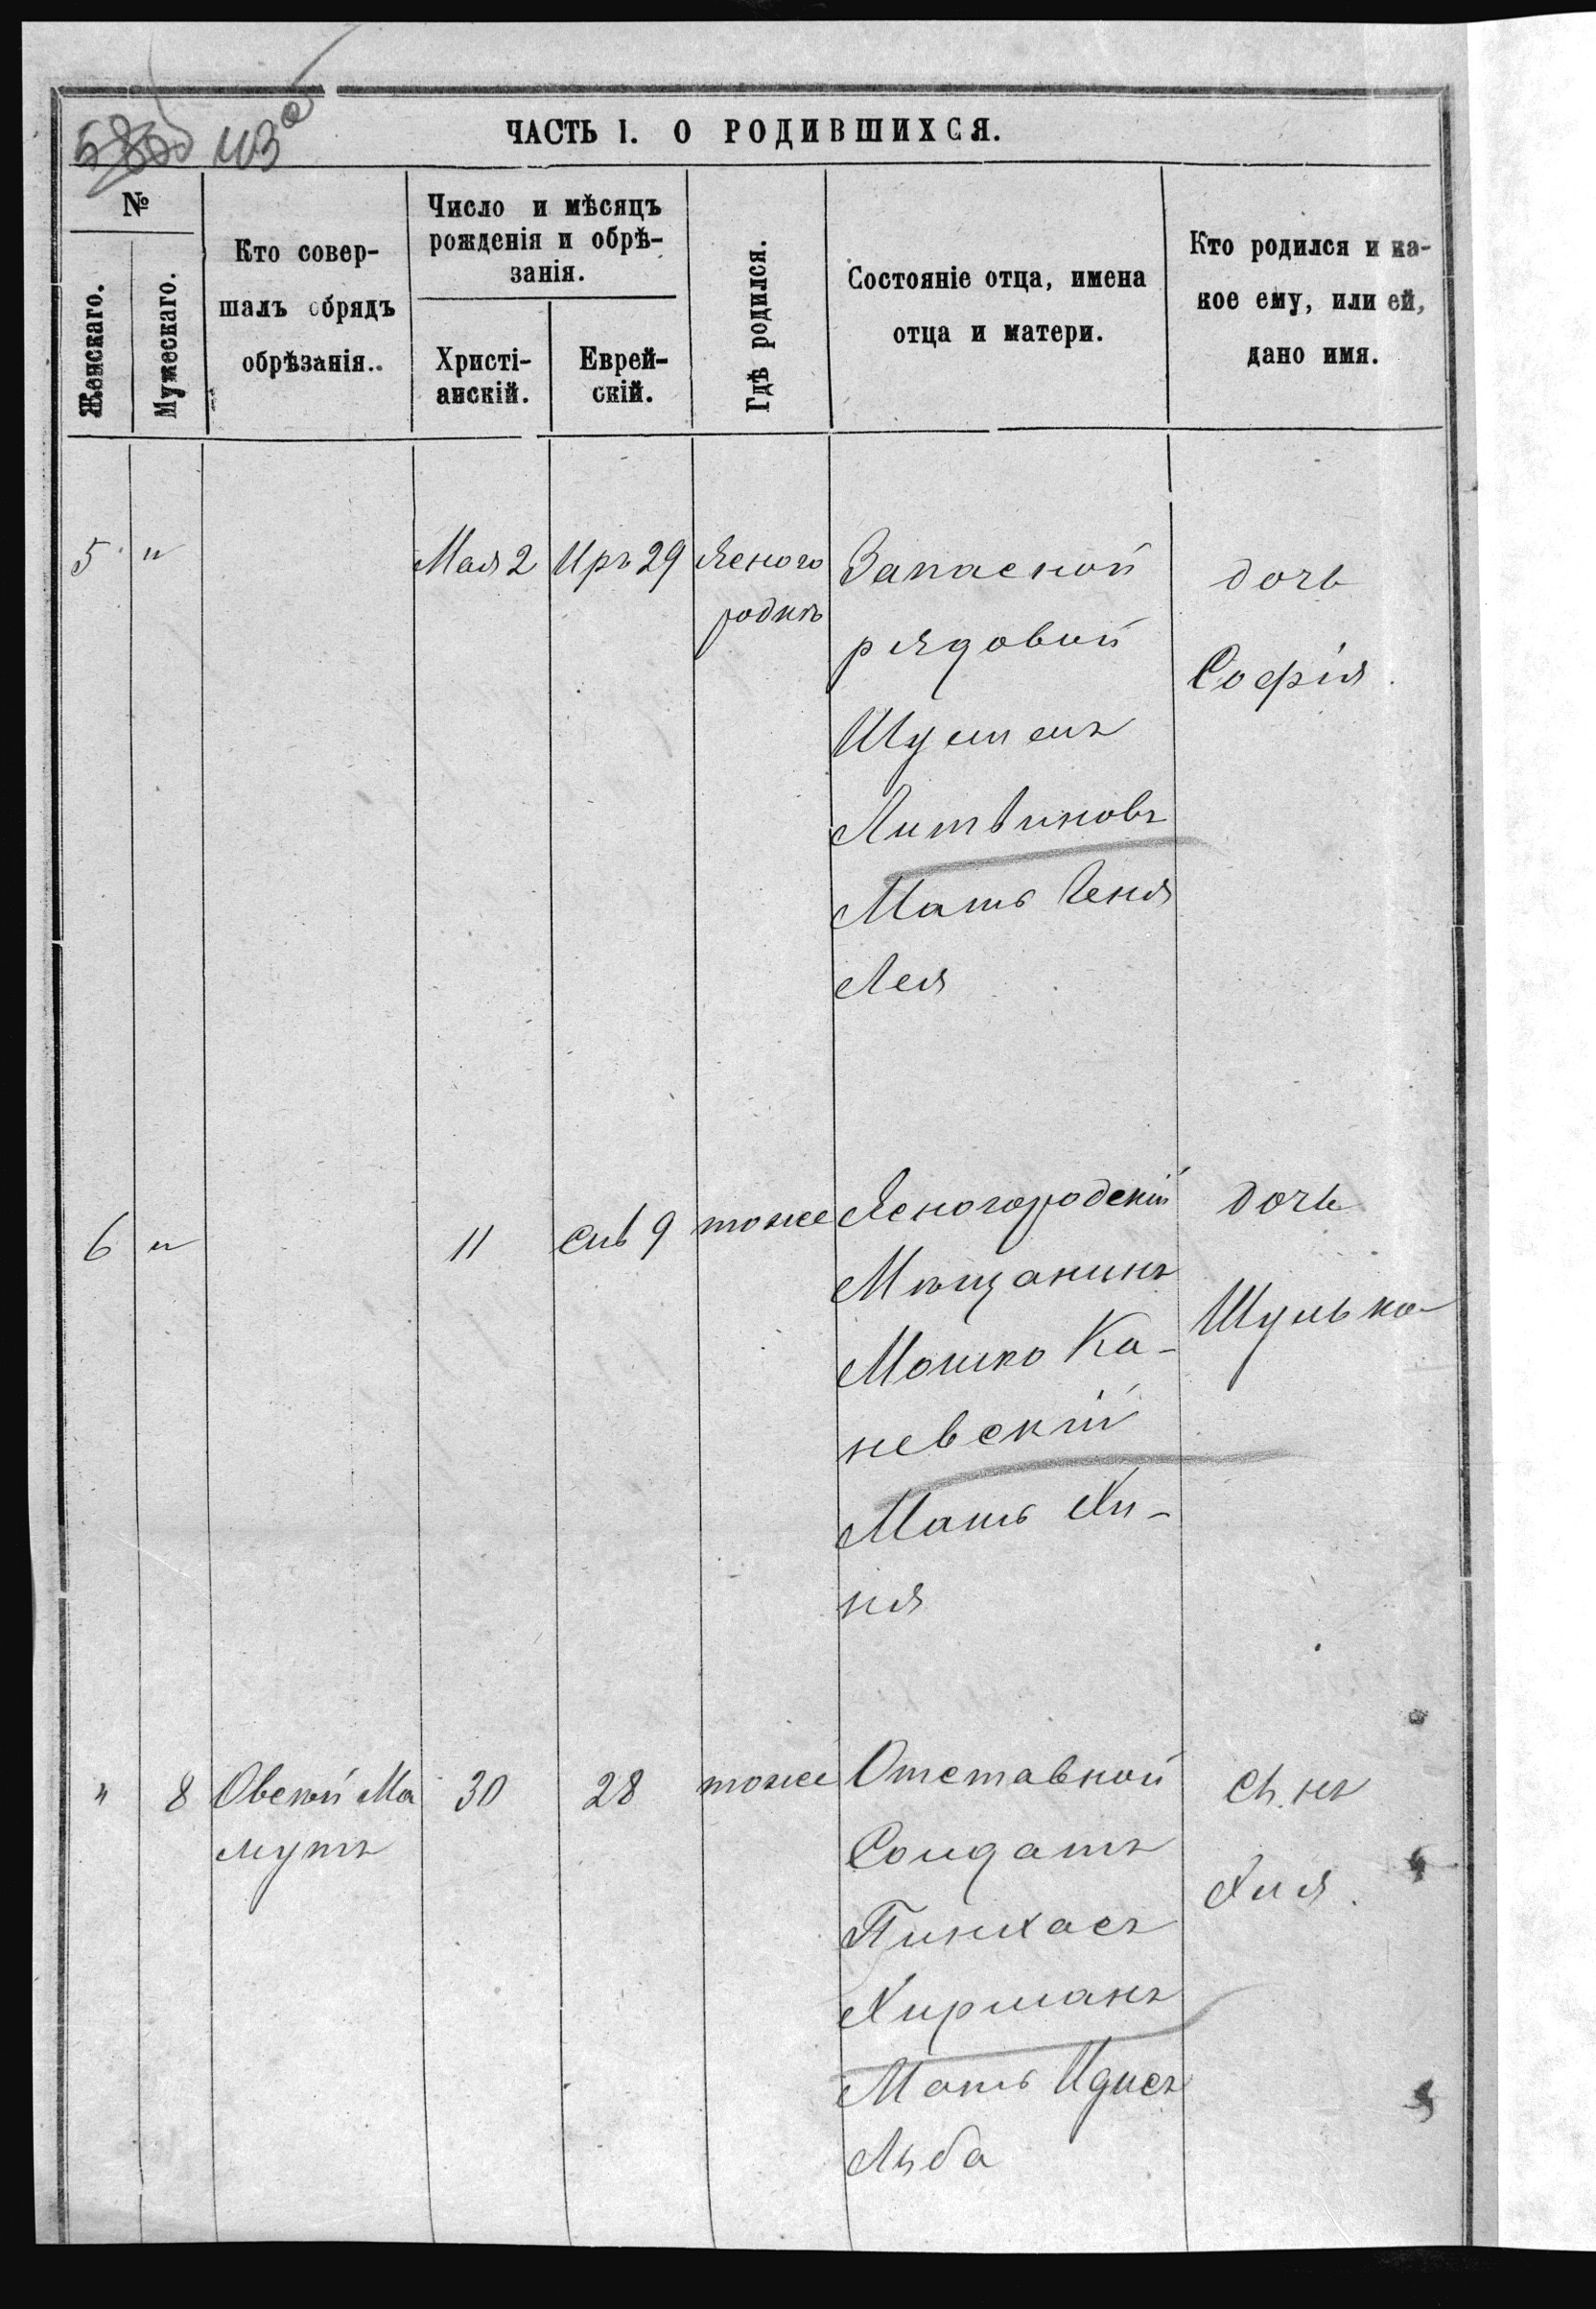 403
ЧАСТЬ I. О РОДИВШИХСЯ.
№
Женскаго.
Мужескаго.
Кто совер-
шалъ обрядъ
обрѣзанія..
Число и мѣсяцъ
рожденія и обрѣ-
занія.
Христі-
анскій.
Еврей-
скій.
Гдѣ родился.
Состояніе отца, имена
отца и матери.
Кто родился и ка-
кое ему, или ей,
дано имя.
5 "
Мая 2
Иръ 29
Ясного
родкѣ
Запасной
рядовый
Литвиновъ
Мать Геня
Лея
дочь
Софія.
6 "
11
Сив 9
тоже
Ясногородскій
Мѣщанинъ
Мошко Ка-
невскій
Мать Хи-
ня
дочь
" 8
Овсей Ма
мутъ
30
28
тоже
Отставной
Солдатъ
Пинхасъ
Хирманъ
Мать Идисъ
Люба
сынъ